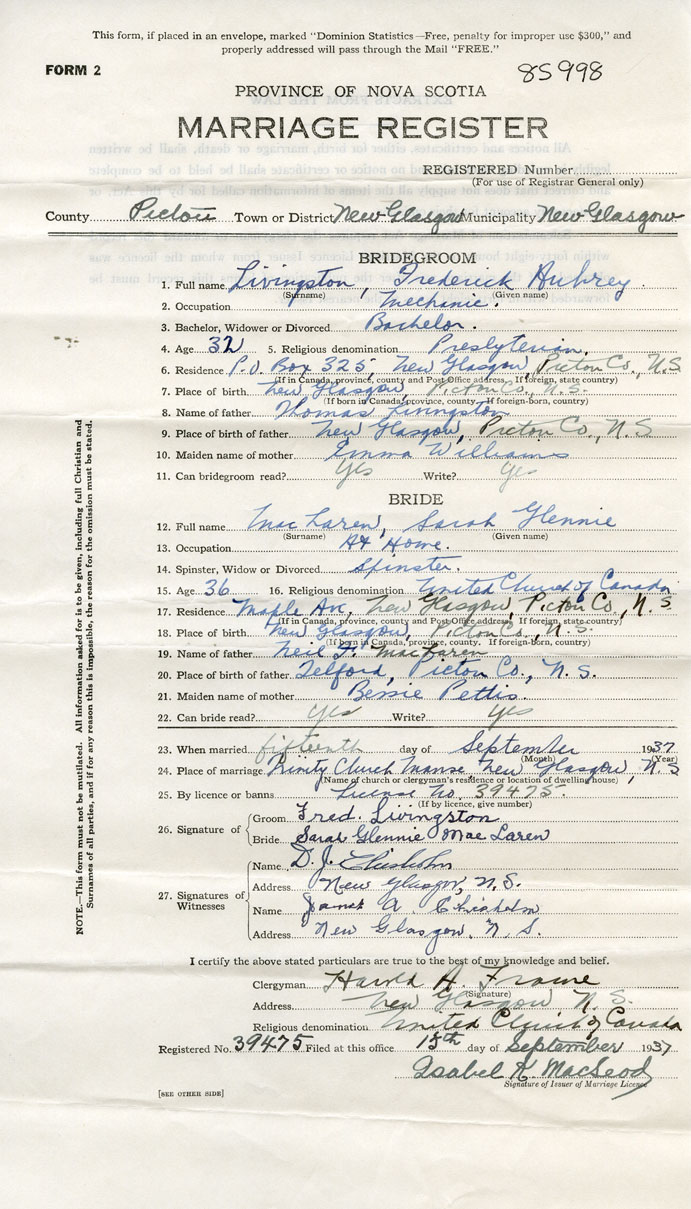 This form, if placed in an envelope, marked "Dominion Statistics—Free, penalty for improper use $300," and
properly addressed will pass through the Mail "FREE."
FORM 2
85998
PROVINCE OF NOVA SCOTIA
MARRIAGE REGISTER
REGISTERED Number
(For use of Registrar General only)
County Pictou Town or District New Glasgow Municipality New Glasgow
BRIDEGROOM
1. Full name Livingston, Frederick Aubrey
(Surname) (Given name)
2. Occupation Mechanic.
3. Bachelor, Widower or Divorced Bachelor.
4. Age 32 5. Religious denomination Presbyterian.
6. Residence P.O. Box 325, New Glasgow, Pictou Co., N.S.
(If in Canada, province, county and Post Office address. If foreign, state country)
7. Place of birth New Glasgow, Pictou Co., N.S.
(If born in Canada, province, county. If foreign-born, country)
8. Name of father Thomas Livingston
9. Place of birth of father New Glasgow, Pictou Co., N.S
10. Maiden name of mother Emma Williams
11. Can bridegroom read? Yes Write? Yes
BRIDE
12. Full name MacLaren, Sarah Glennie
(Surname) (Given name)
13. Occupation At Home.
14. Spinster, Widow or Divorced Spinster.
15. Age 36 16. Religious denomination United Church of Canada
17. Residence Maple Ave, New Glasgow, Pictou Co., N.S
(If in Canada, province, county and Post Office address. If foreign, state country)
18. Place of birth New Glasgow, Pictou Co., N.S.
(If born in Canada, province, county. If foreign-born, country)
19. Name of father Neil F. MacLaren
20. Place of birth of father Telford, Pictou Co., N.S.
21. Maiden name of mother Bessie Pettis.
22. Can bride read? Yes Write? Yes
23. When married fifteenth day of September 1937
(Month) (Year)
24. Place of marriage Trinity Church Manse New Glasgow, N.S
(Name of church or clergyman's residence or location of dwelling house)
25. By licence or banns License No. 39475.
(If by licence, give number)
26. Signature of Groom Fred. Livingston
Bride Sarah Glennie MacLaren
27. Signatures of Witnesses
Name D. J. Chisholm
Address New Glasgow, N.S.
Name Janet A. Chisholm
Address New Glasgow, N.S.
I certify the above stated particulars are true to the best of my knowledge and belief.
Clergyman Harold A. Frame
(Signature)
Address New Glasgow N.S.
Religious denomination United Church of Canada
Registered No. 39475 Filed at this office 15th day of September 1937
Isabel K. MacLeod
Signature of Issuer of Marriage Licence
[SEE OTHER SIDE]
NOTE.—This form must not be mutilated. All information asked for is to be given, including full Christian and
Surnames of all parties, and if for any reason this is impossible, the reason for the omission must be stated.